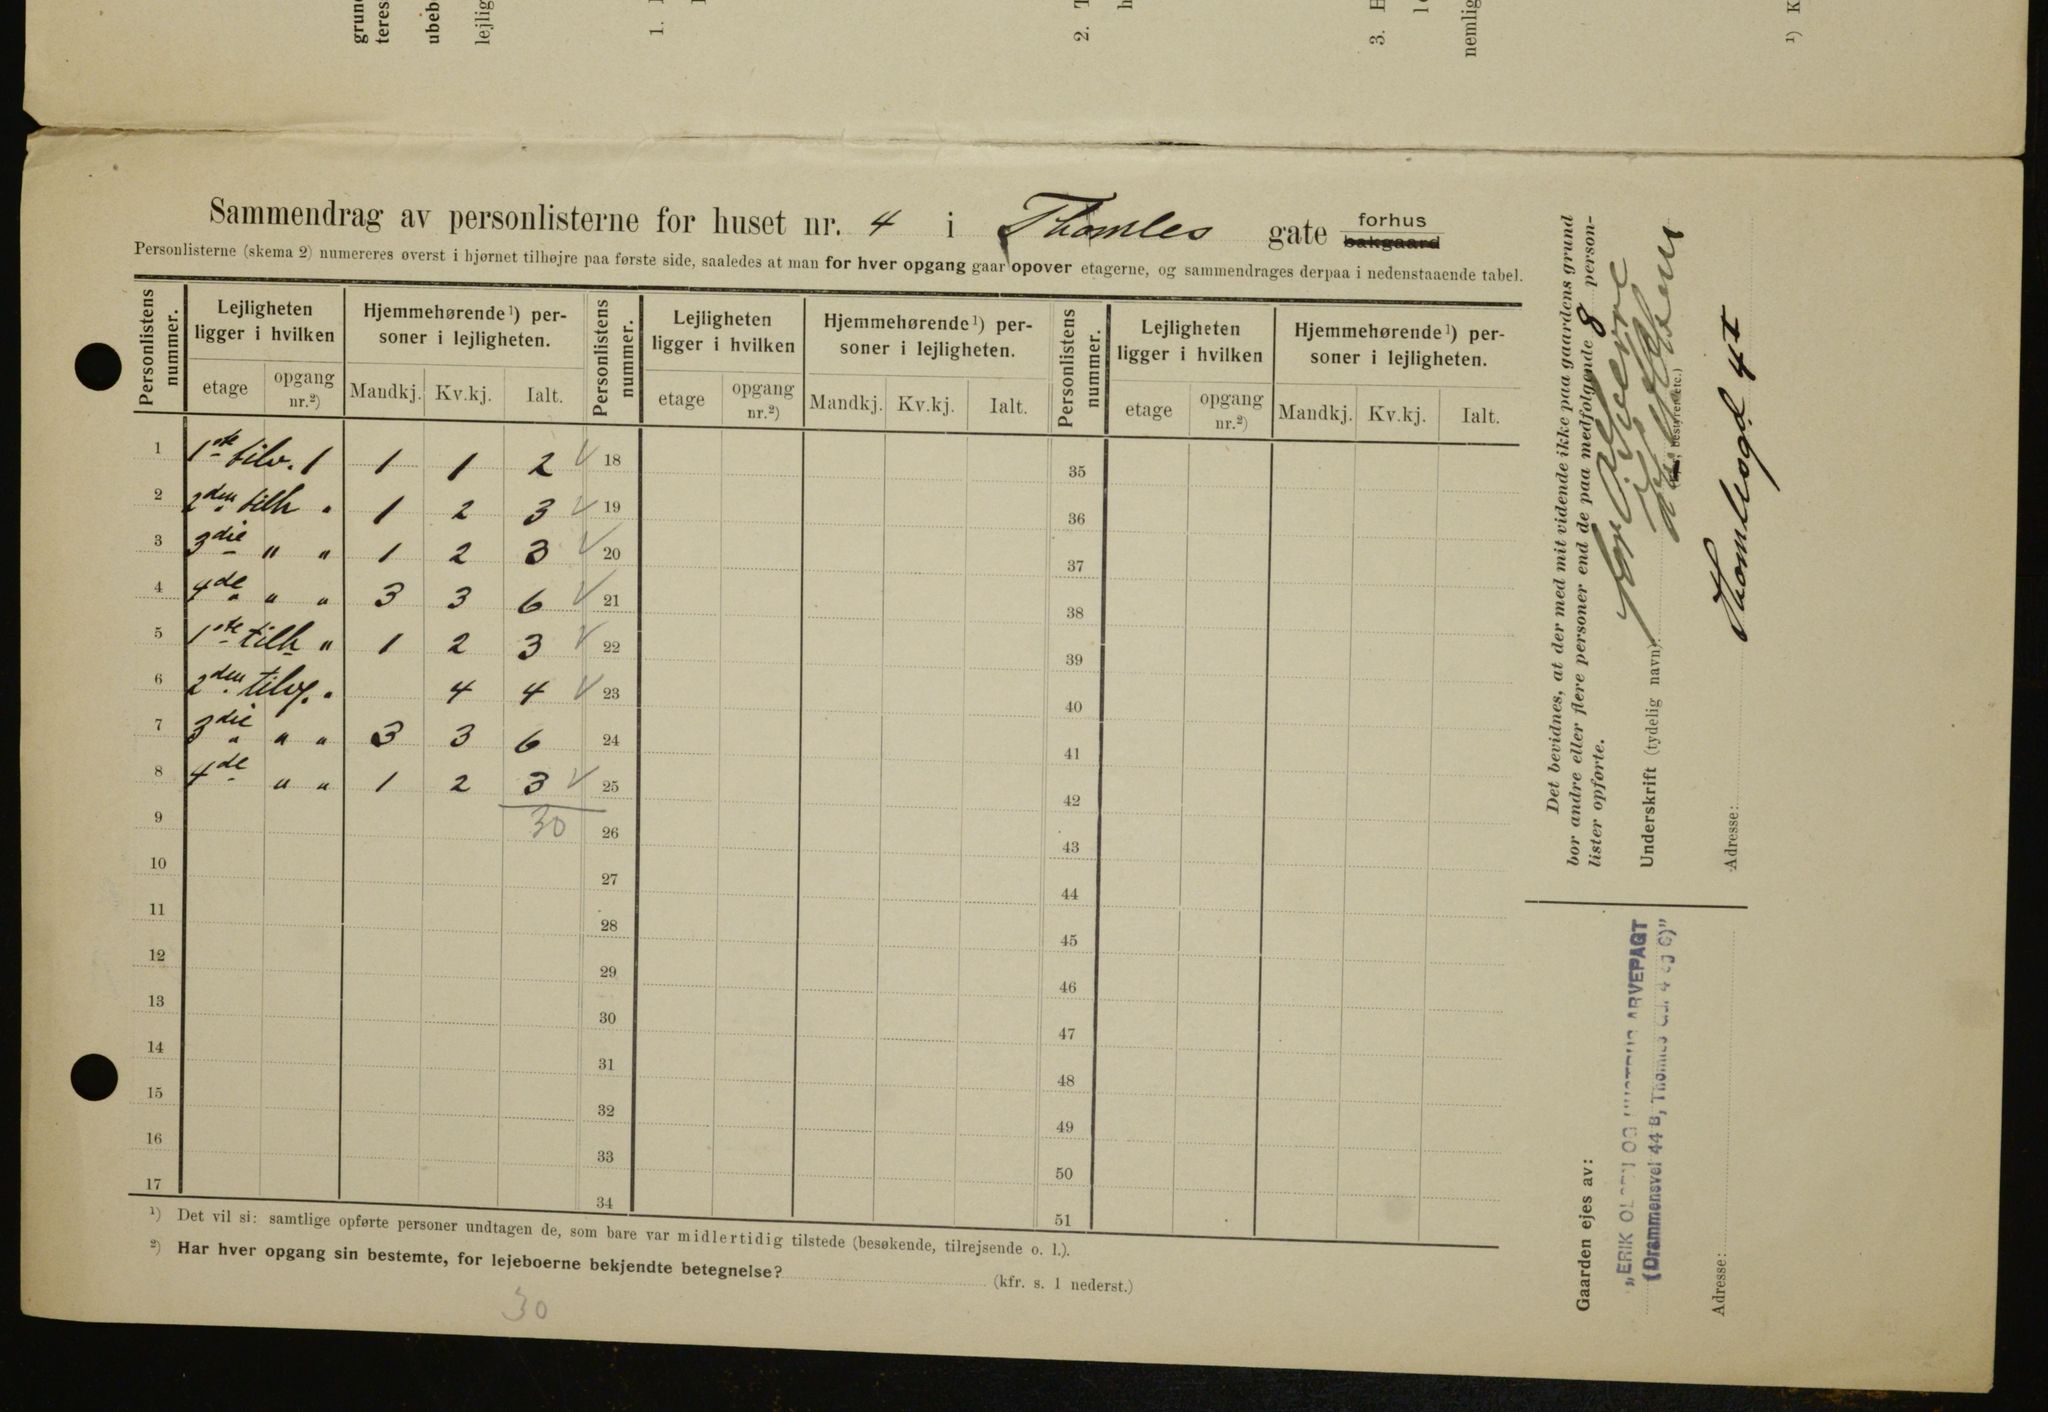 grun
teres
ubeb
lejlig
1.
2. T
h
3. E
1
nemlig
¹) K
Sammendrag av personlisterne for huset nr. 4 i Thomles gate forhus
bakgaard
Personlisterne (skema 2) numereres øverst i hjørnet tilhøjre paa første side, saaledes at man for hver opgang gaar opover etagerne, og sammendrages derpaa i nedenstaaende tabel.
Personlistens nummer. Lejligheten ligger i hvilken Hjemmehørende¹) personer i lejligheten. Personlistens nummer. Lejligheten ligger i hvilken Hjemmehørende¹) personer i lejligheten. Personlistens nummer. Lejligheten ligger i hvilken Hjemmehørende¹) personer i lejligheten.
etage opgang nr.²) Mandkj. Kv.kj. Ialt. etage opgang nr.²) Mandkj. Kv.kj. Ialt. etage opgang nr.²) Mandkj. Kv.kj. Ialt.
1 1ste tilv. 1 1 1 2 ✓ 18 35
2 2den tilh " 1 2 3 ✓ 19 36
3 3die " " 1 2 3 ✓ 20 37
4 4de " " 3 3 6 ✓ 21 38
5 1ste tilh " 1 2 3 ✓ 22 39
6 2den tilv. " 4 4 ✓ 23 40
7 3die " " 3 3 6 24 41
8 4de " " 1 2 3 ✓ 25 42
9 30 26 43
10 27 44
11 28 45
12 29 46
13 30 47
14 31 48
15 32 49
16 33 50
17 34 51
¹) Det vil si: samtlige opførte personer undtagen de, som bare var midlertidig tilstede (besøkende, tilrejsende o. l.).
²) Har hver opgang sin bestemte, for lejeboerne bekjendte betegnelse? (kfr. s. 1 nederst.)
30
Det bevidnes, at der med mit vidende ikke paa gaardens grund
bor andre eller flere personer end de paa medfølgende 8 person-
lister opførte.
Underskrift (tydelig navn):
for
bestyrer etc.)
Adresse: Thomlesgd. 4 I
Gaarden ejes av:
„ERIK OLSEN OG HUSTRUS ARVEPAGT
(Drammensvei 44 B, Thomles Gd. 4 og 6)"
Adresse: